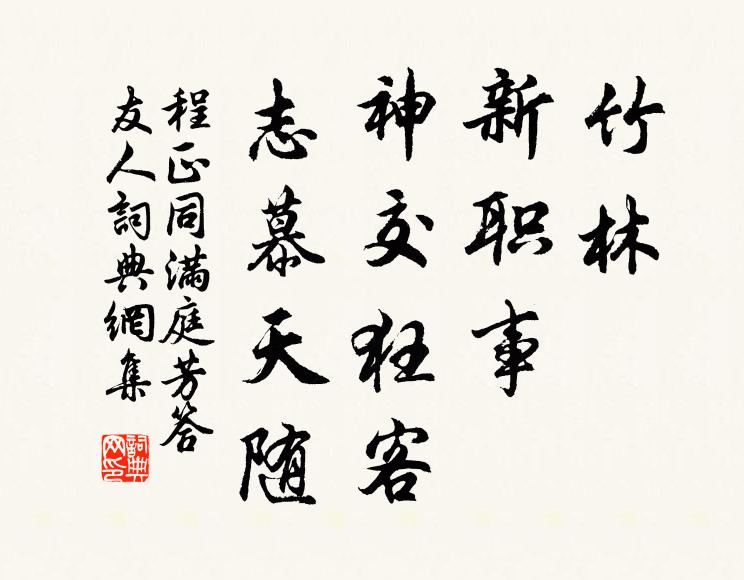 竹林
新职事
神交狂客
志慕天随
程正同满庭芳答
友人詞典網集
詞典网印